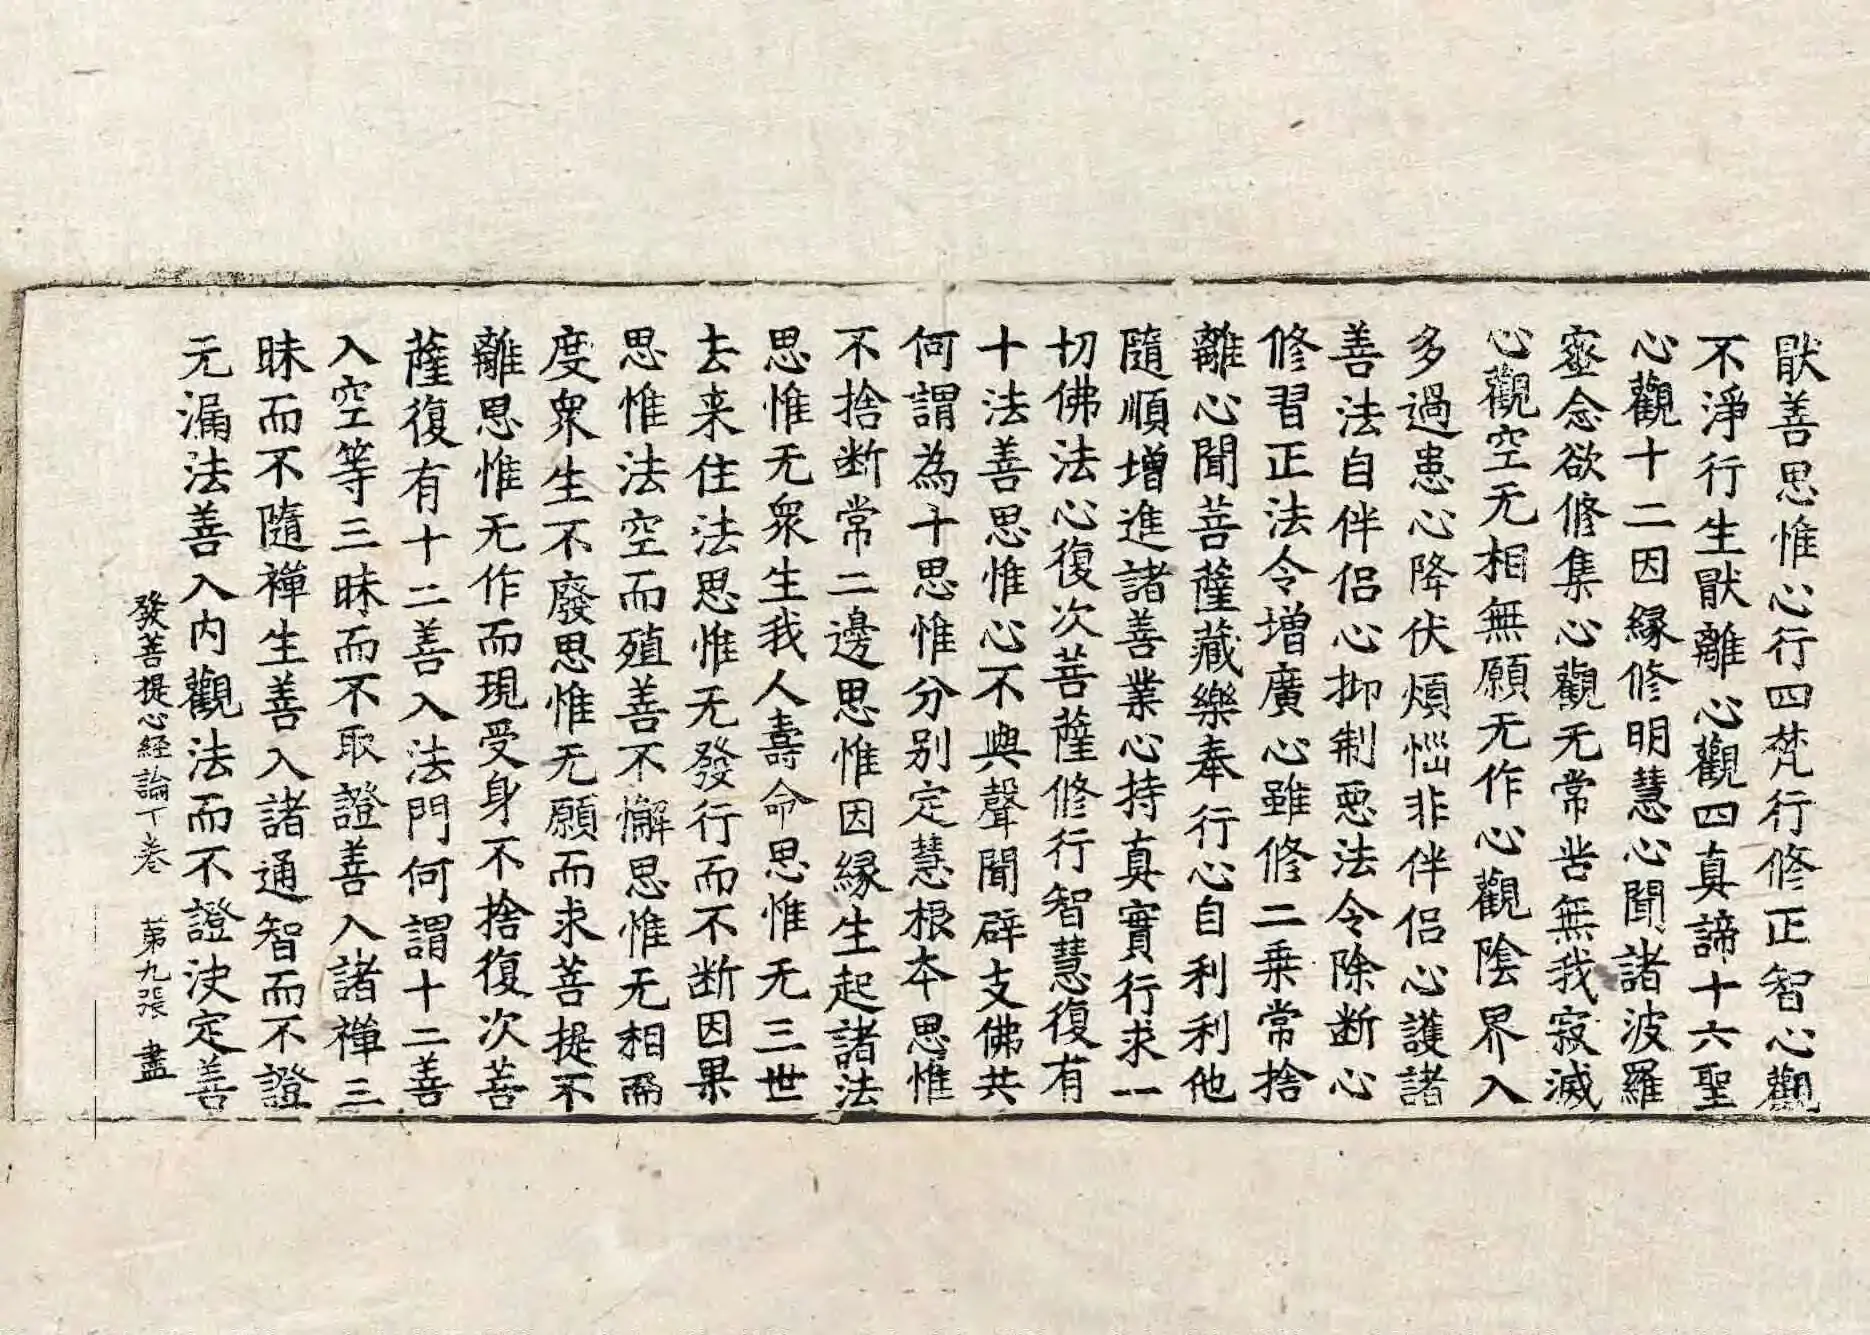 猒善思惟心行四梵行修正智心觀
不淨行生猒離心觀四真諦十六聖
心觀十二因縁修明慧心聞諸波羅
蜜念欲修集心觀无常苦無我寂滅
心觀空无相無願无作心觀陰界入
多過患心降伏煩惱非伴侣心護諸
善法自伴侣心抑制惡法令除断心
修習正法令增廣心雖修二乗常捨
離心聞菩薩藏樂奉行心自利利他
隨順增進諸善業心持真實行求一
切佛法心復次菩薩修行智慧復有
十法善思惟心不與聲聞辟支佛共
何謂為十思惟分别定慧根本思惟
不捨断常二邊思惟因縁生起諸法
思惟无衆生我人壽命思惟无三世
去来住法思惟无發行而不断因果
思惟法空而殖善不懈思惟无相而
度衆生不廢思惟无願而求菩提不
離思惟无作而現受身不捨復次菩
薩復有十二善入法門何謂十二善
入空等三昧而不取證善入諸禪三
昧而不隨禪生善入諸通智而不證
无漏法善入内觀法而不證决定善
發菩提心経論下卷 苐九張 盡